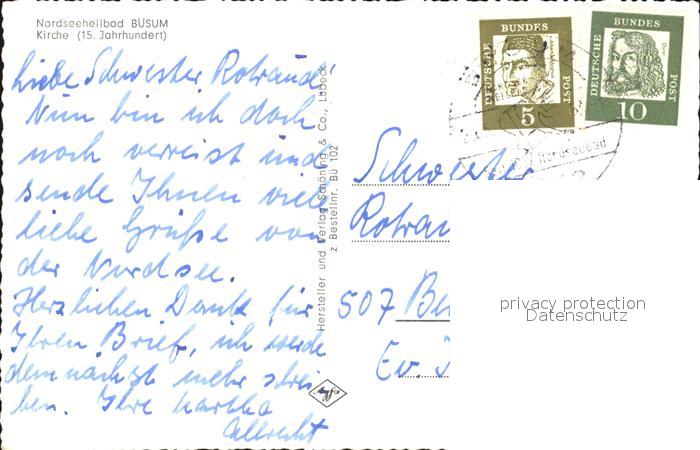 Nordseeheilbad BÜSUM
Kirche (15. Jahrhundert)
Liebe Schwester Rotraud!
Nun bin ich doch
noch verreist und
sende Ihnen viele
liebe Grüße von
der Nordsee.
Herzlichen Dank für
Ihren Brief, ich werde
demnächst mehr schrei
ben. Ihre Martha
Albrecht
Hersteller und Verlag Schöning & Co., Lübeck
Bestellnr. Bü 102
Agfa
DEUTSCHE BUNDES POST
5
DEUTSCHE BUNDES POST
Dürer
10
Nordseebad
Schwester
Rotrau
507 Be
Ev.
privacy protection
Datenschutz